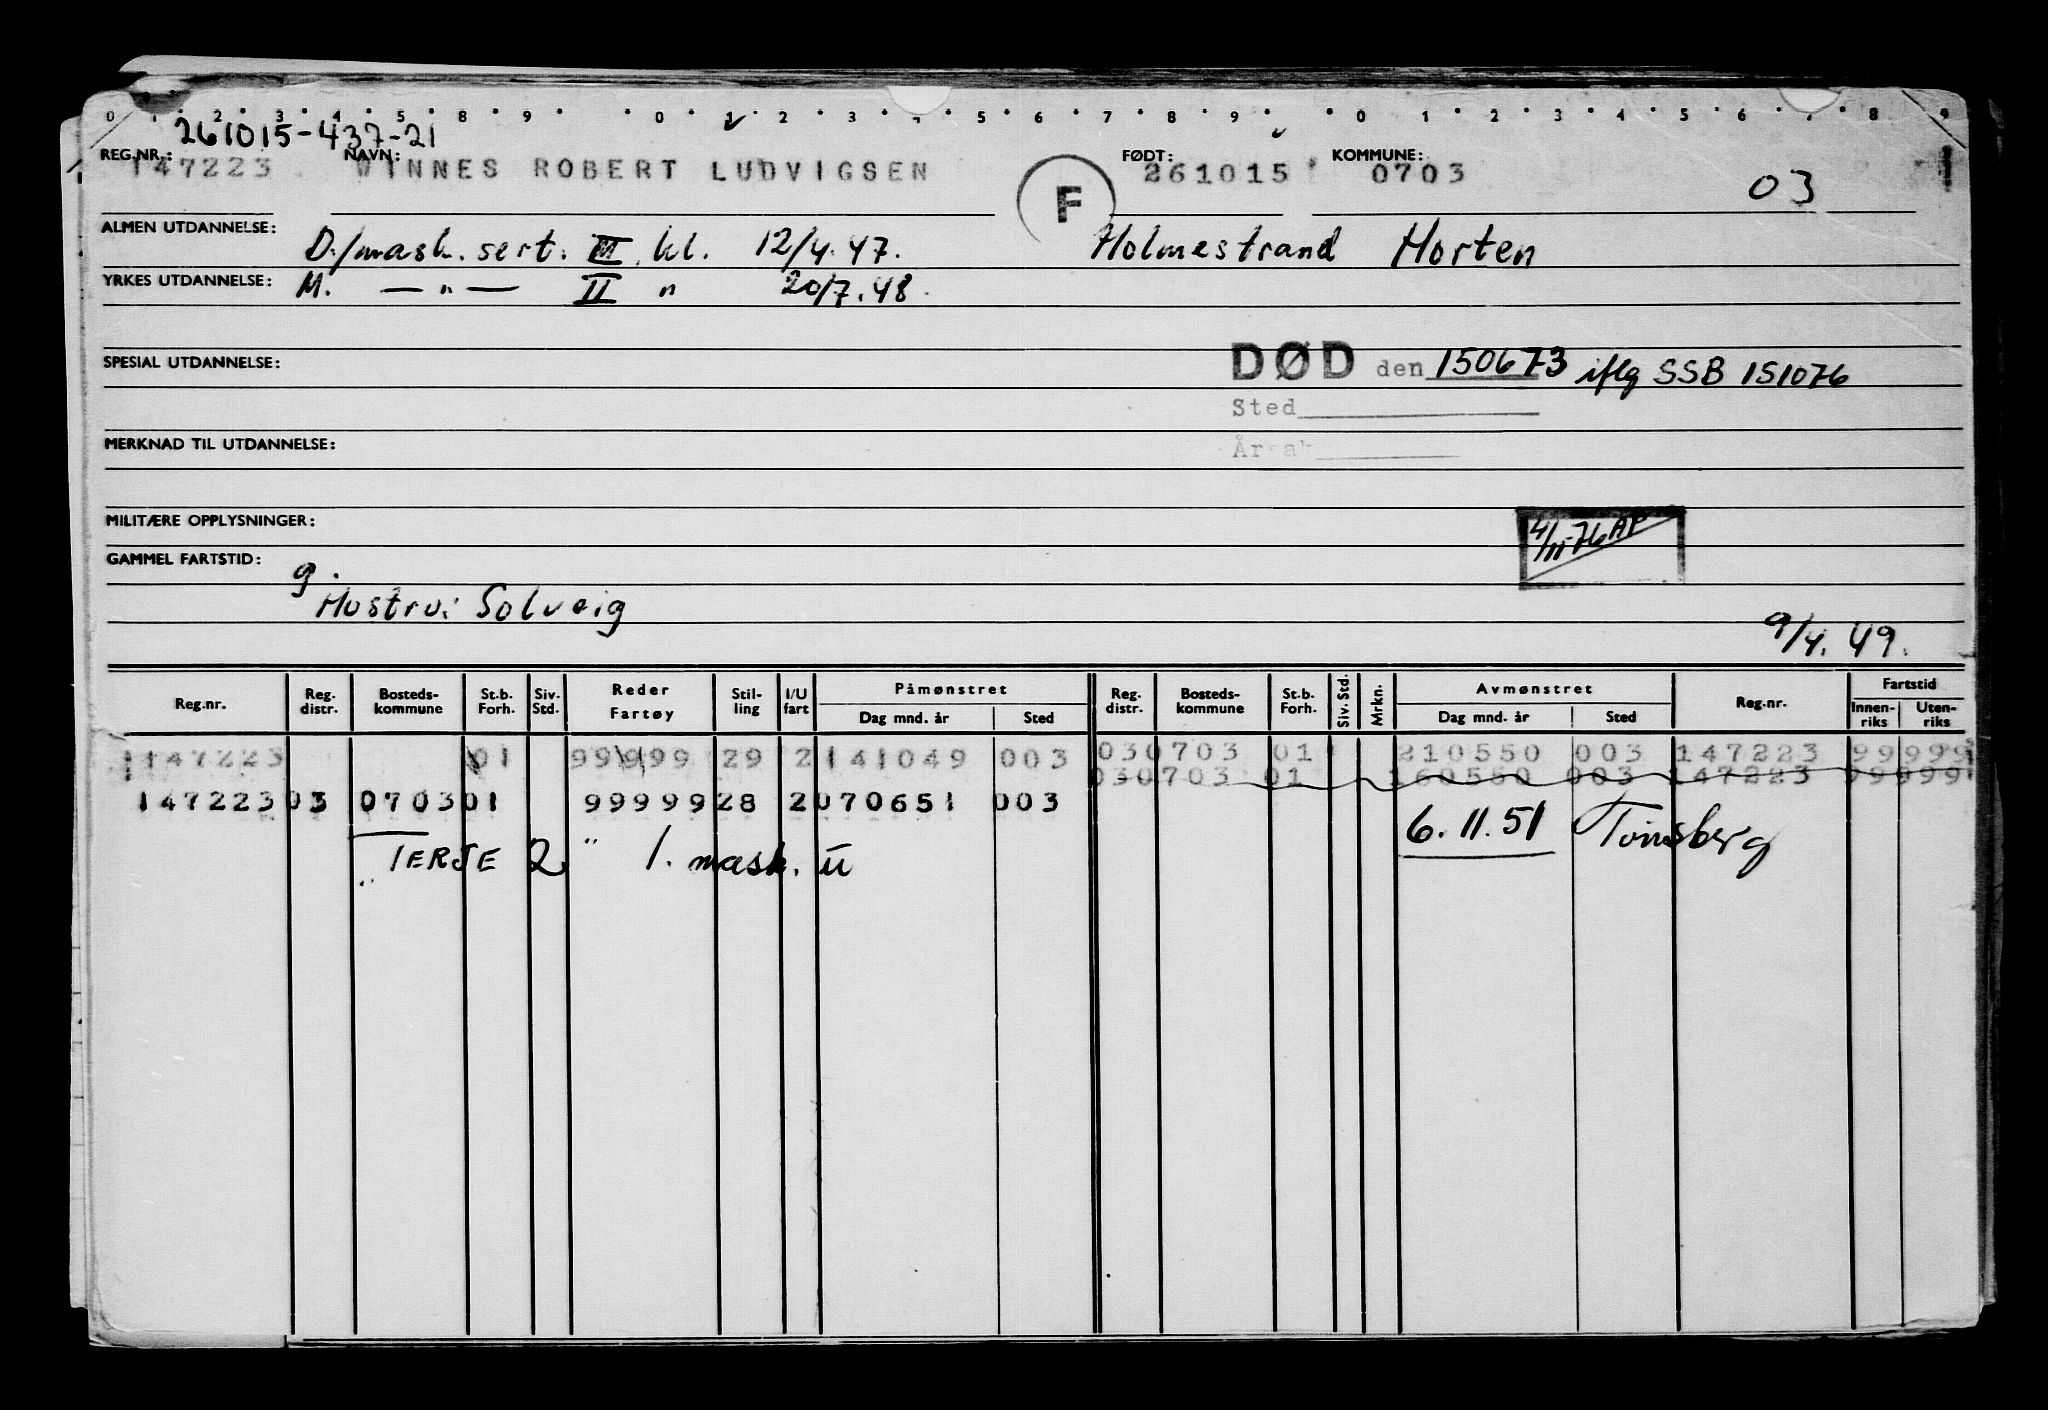 0 1 2 3 4 5 8 9 0 1 2 3 4 5 6 7 8 9 0 1 2 3 4 5 6 7 8 9
261015-437-21
REG.NR.: NAVN: FØDT: KOMMUNE:
147223 VINNES ROBERT LUDVIGSEN F 261015 0703 03
ALMEN UTDANNELSE: D./mask. sert. III kl. 12/4.47. Holmestrand Horten
YRKES UTDANNELSE: M. — " — II " 20/7.48.
SPESIAL UTDANNELSE: DØD den 150673 iflg SSB 151076
Sted
MERKNAD TIL UTDANNELSE: Årsak
MILITÆRE OPPLYSNINGER: 4/11-76 AP
GAMMEL FARTSTID:
g.
Hustru: Solveig
9/4.49.
Reg.nr. Reg. distr. Bosteds-kommune St.b. Forh. Siv. Std. Reder Fartøy Stil-ling I/U fart Påmønstret Dag mnd. år Sted Reg. distr. Bosteds-kommune St.b. Forh. Siv. Std. Mrkn. Avmønstret Dag mnd. år Sted Reg.nr. Fartstid Innen-riks Uten-riks
147223 01 99999 29 2 141049 003 03 0703 01 210550 003 147223 99 999
03 0703 01 160550 003 147223 99 999
147223 03 0703 01 99999 28 2 070651 003
6.11.51 Tønsberg
"TERJE 2" 1. mask. U